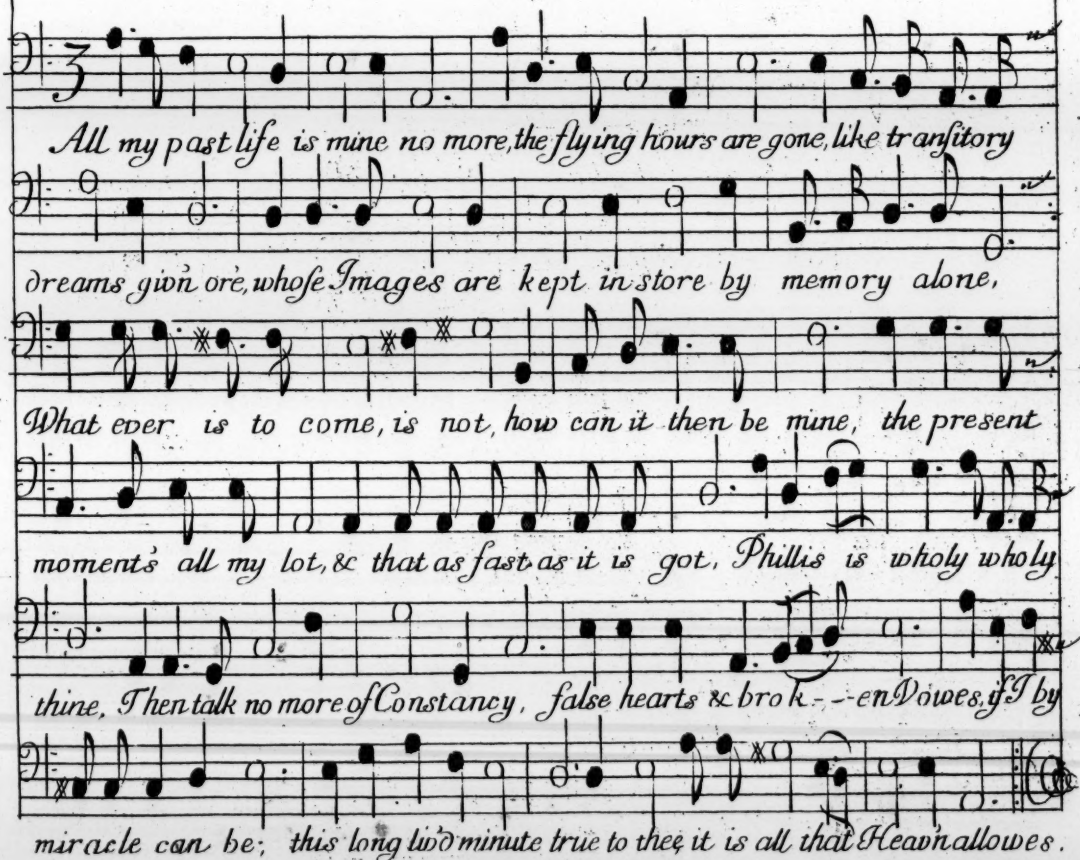 3
All my past life is mine no more, the flying hours are gone, like tranſitory
dreams giv'n ore, whoſe Images are kept in store by memory alone,
What ever is to come, is not, how can it then be mine, the present
moment's all my lot, & that as fast as it is got, Phillis is wholy wholy
thine, Then talk no more of Constancy, false hearts & brok---en Vowes, if I by
miracle can be; this long liv'd minute true to thee, it is all that Heav'n allowes.